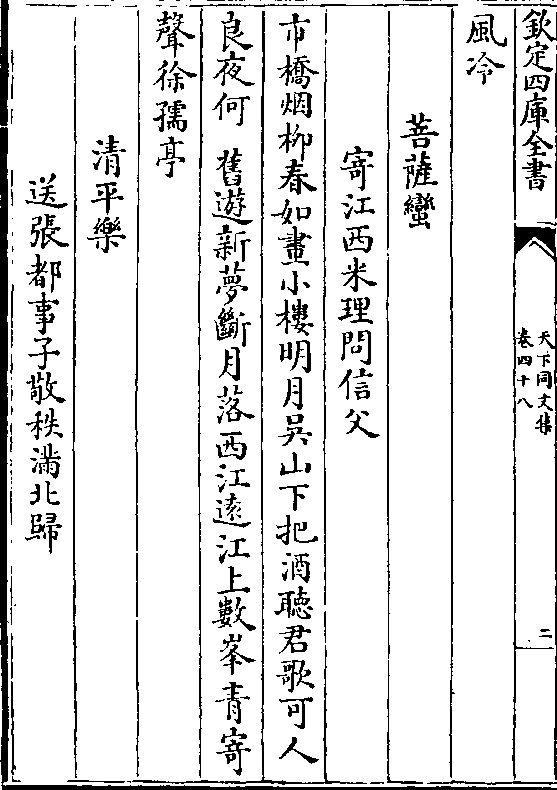 欽定四庫全書
天下同文集
卷四十八
二
風冷
菩薩蠻
寄江西米理問信父
市橋烟柳春如畫小樓明月吳山下把酒聽君歌可人
良夜何　舊遊新夢斷月落西江遠江上數峯青寄
聲徐孺亭
清平樂
送張都事子敬秩滿北歸